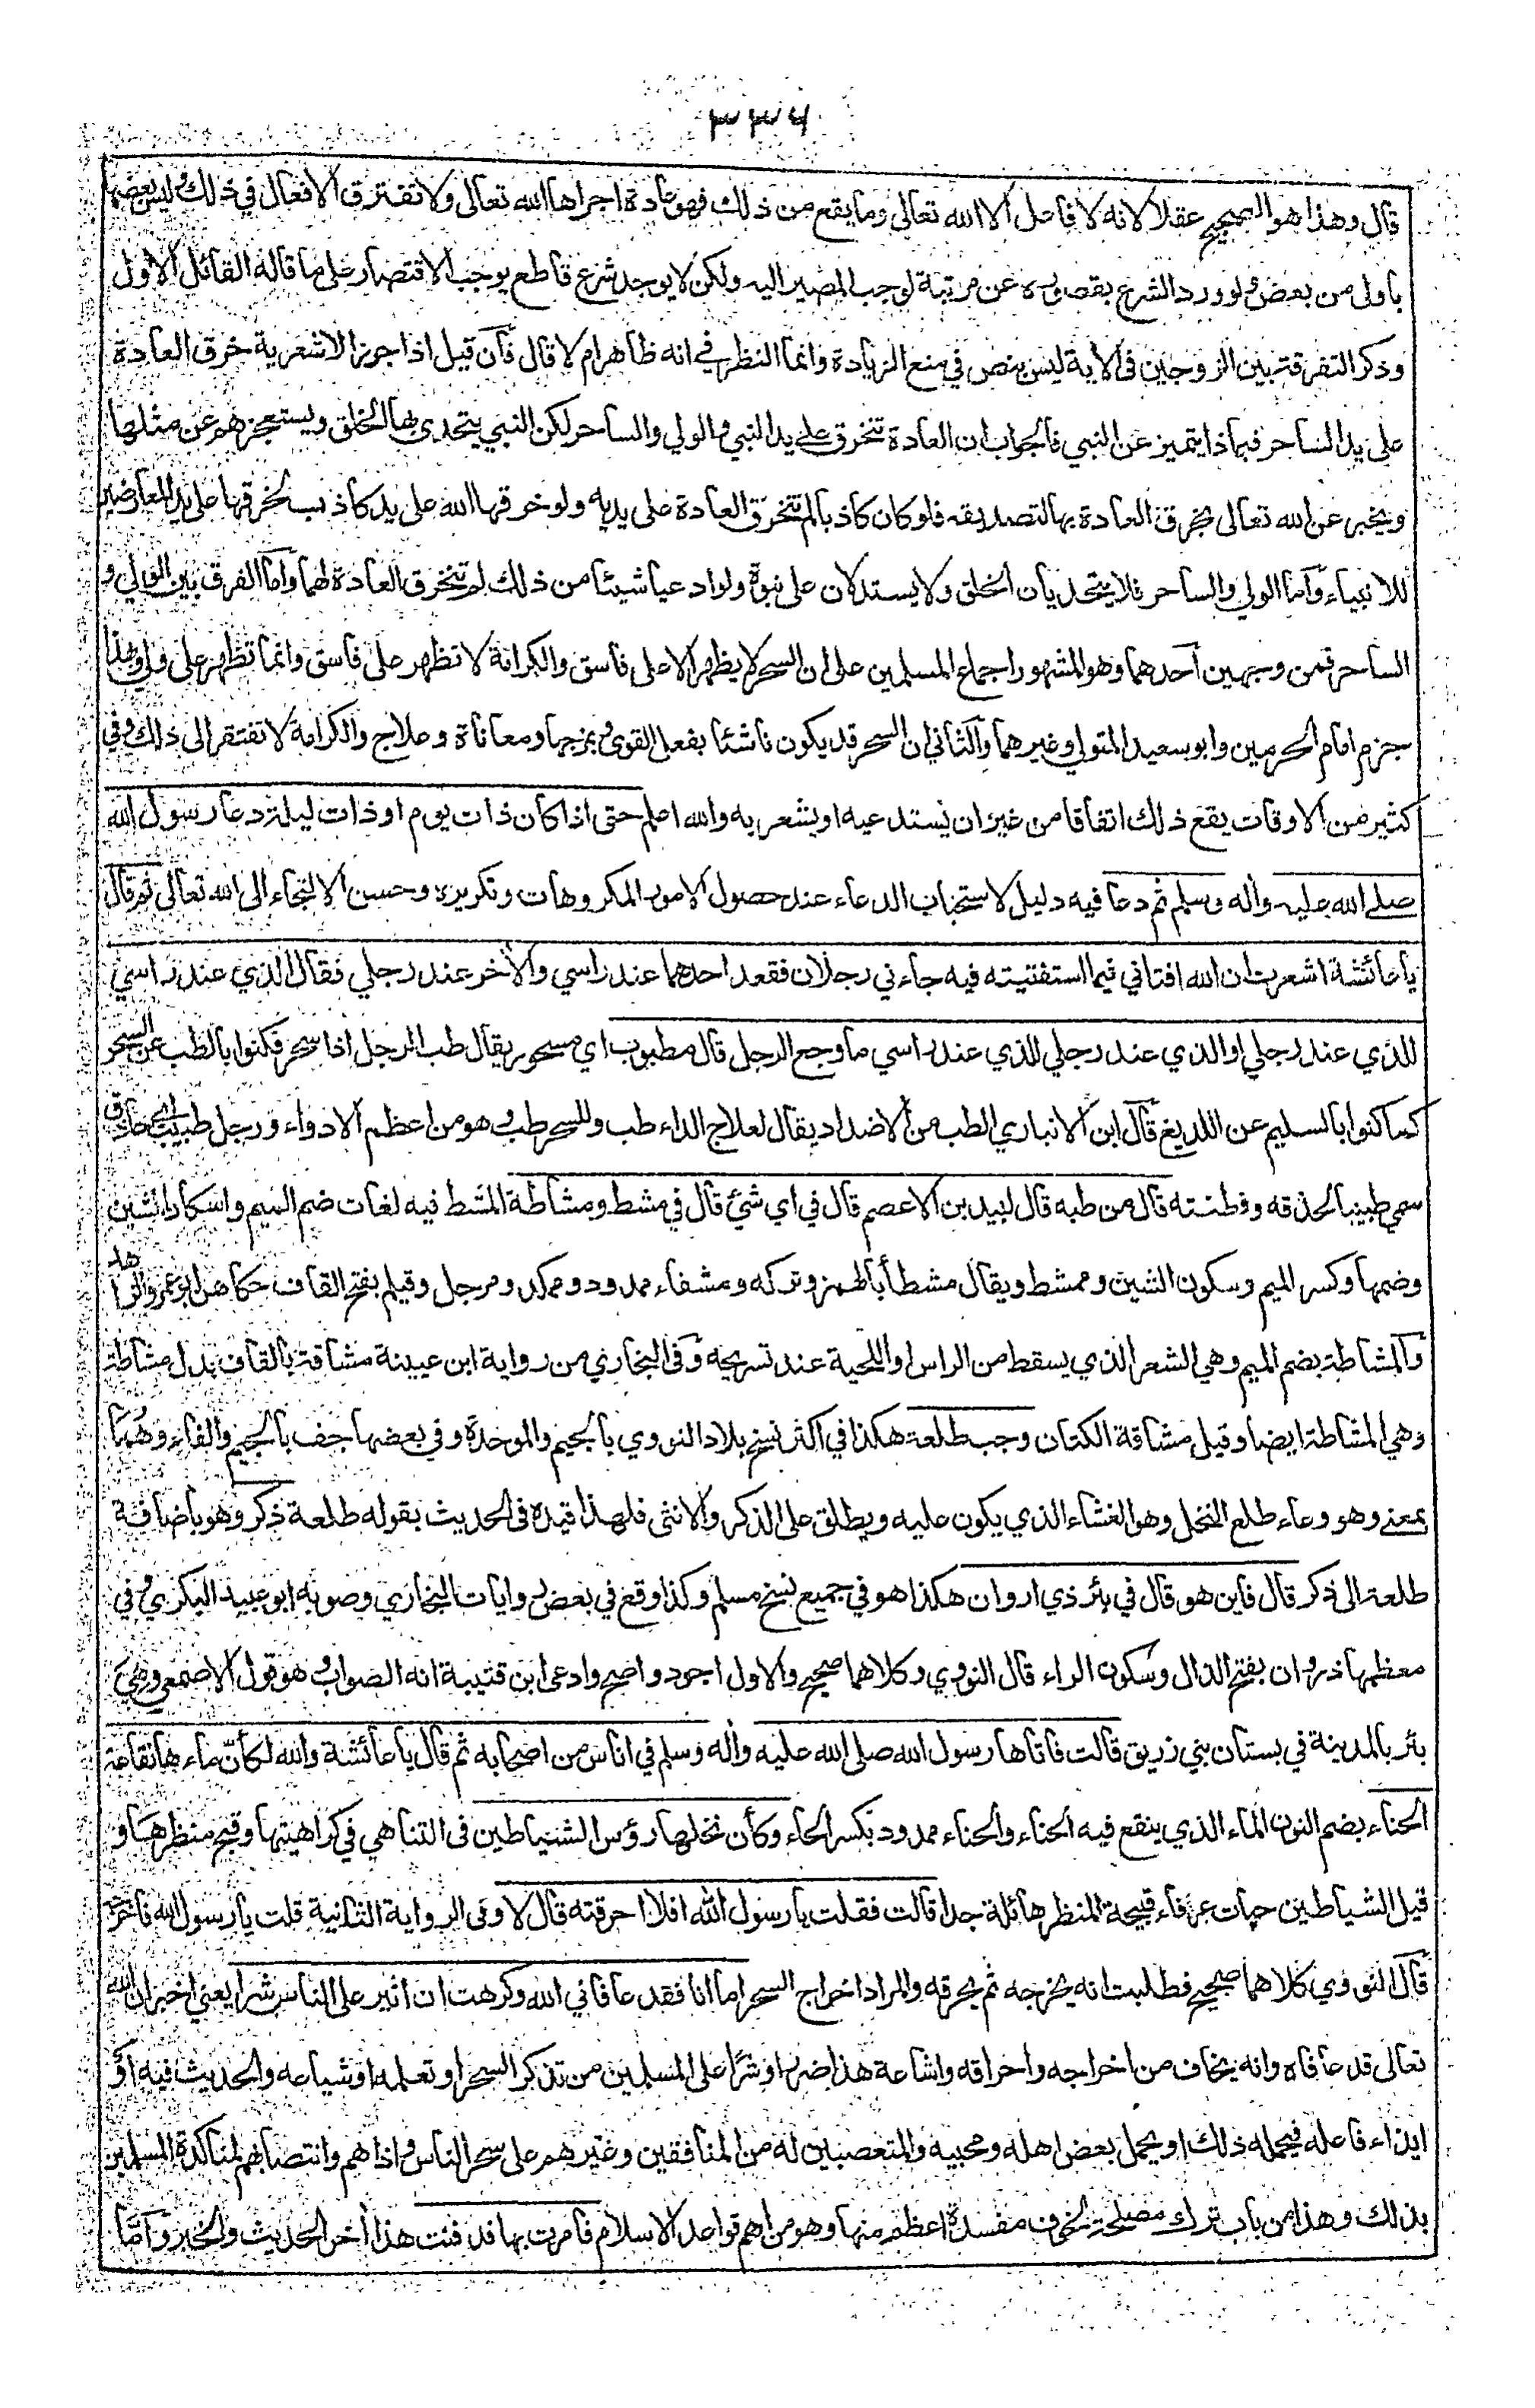 ٣٣٦
قال وهذا هو الصحيح عقلا لانه لا فاعل الا الله تعالى وما يقع من ذلك فهو عادة اجراها الله تعالى ولا تفترق الافعال في ذلك وليس بعضها
بأولى من بعض ولو ورد الشرع بقصوره عن مرتبة لوجب المصير اليه ولكن لا يوجد شرع قاطع يوجب الاقتصار على ما قاله القائل الاول
وذكر التفرقة بين الزوجين في الاية ليس بنص في منع الزيادة وانما النظر في انه ظاهر ام لا قال فان قيل اذا جوز الاشعرية خرق العادة
على يد الساحر فبماذا يتميز عن النبي فالجواب ان العادة تنخرق على يد النبي والولي والساحر لكن النبي يتحدى بها الخلق ويستعجزهم عن مثلها
ويخبر عن الله تعالى بخرق العادة بها لتصديقه فلو كان كاذبا لم تنخرق العادة على يديه ولو خرقها الله على يد كاذب لخرقها على يد المعارضين
للانبياء وأما الولي والساحر فلا يتحديان الخلق ولا يستدلان على نبوة ولو ادعيا شيئا من ذلك لم تنخرق العادة لهما وأما الفرق بين الولي و
الساحر فمن وجهين احدهما وهو المشهور اجماع المسلمين على ان السحر لا يظهر الا على فاسق والكرامة لا تظهر على فاسق وانما تظهر على ولي وبهذا
جزم امام الحرمين وابو سعيد المتولي وغيرهما والثاني ان السحر قد يكون ناشئا بفعل القوى وبمزجها ومعاناة وعلاج والكرامة لا تفتقر الى ذلك وفي
كثير من الاوقات يقع ذلك اتفاقا من غير ان يستدعيه او يشعر به والله اعلم حتى اذا كان ذات يوم او ذات ليلة دعا رسول الله
صلى الله عليه وأله وسلم ثم دعا فيه دليل لاستحباب الدعاء عند حصول الامور المكروهات وتكريره وحسن الالتجاء الى الله تعالى ثم قال
يا عائشة اشعرت ان الله افتاني فيما استفتيته فيه جاءني رجلان فقعد احدهما عند راسي والأخر عند رجلي فقال الذي عند راسي
للذي عند رجلي او الذي عند رجلي للذي عند راسي ما وجع الرجل قال مطبوب اي مسحور يقال طب الرجل اذا سحر فكنوا بالطب عن السحر
كما كنوا بالسليم عن اللديغ قال ابن الانباري الطب من الاضداد يقال لعلاج الداء طب وللسحر طب وهو من اعظم الادواء ورجل طبيب اي حاذق
سمي طبيبا لحذقه وفطنته قال من طبه قال لبيد بن الاعصم قال في اي شئ قال في مشط ومشاطة المشط فيه لغات ضم الميم واسكان الشين
وضمها وكسر الميم وسكون الشين وممشط ويقال مشطأ بالهمز وتركه ومشقاء ممدود وممكد ومرجل وقيلم بفتح القاف حكاهن ابو عمرو الزاهد
والمشاطة بضم الميم وهي الشعر الذي يسقط من الراس او اللحية عند تسريحه وفى البخاري من رواية ابن عيينة مشاقة بالقاف بدل مشاطة
وهي المشاطة ايضا وقيل مشاقة الكتان وجب طلعة هكذا في اكثر نسخ بلاد النووي بالجيم والموحدة وفي بعضها جف بالجيم والفاء وهما
بمعنى وهو وعاء طلع النخل وهو الغشاء الذي يكون عليه ويطلق على الذكر والانثى فلهذا قيده فى الحديث بقوله طلعة ذكر وهو باضافة
طلعة الى ذكر قال فاين هو قال في بئر ذي اروان هكذا هو في جميع نسخ مسلم وكذا وقع في بعض روايات البخاري وصوبه ابو عبيد البكري وفي
معظمها ذروان بفتح الذال وسكون الراء قال النووي وكلاهما صحيح والاول اجود واصح وادعى ابن قتيبة انه الصواب وهو قول الاصمعي وهي
بئر بالمدينة في بستان بني زريق قالت فاتاها رسول الله صلى الله عليه وأله وسلم في اناس من اصحابه ثم قال يا عائشة والله لكأن ماءها نقاعة
الحناء بضم النون الماء الذي ينقع فيه الحناء والحناء ممدود بكسر الحاء وكأن نخلها رؤس الشياطين فى التناهي في كراهيتها وقبح منظرها و
قيل الشياطين حيات عرفاء قبيحة المنظر هائلة جدا قالت فقلت يا رسول الله افلا احرقته قال لا وفى الرواية الثانية قلت يا رسول الله فاخرجه
قال النووي كلاهما صحيح فطلبت انه يخرجه ثم يحرقه والمراد اخراج السحر اما انا فقد عافاني الله وكرهت ان اثير على الناس شرا يعني اخبر ان الله
تعالى قد عافاه وانه يخاف من اخراجه واحراقه واشاعة هذا ضررا وشرا على المسلمين من تذكر السحر او تعلمه او شياعه والحديث فيه او
ايذاء فاعله فيحمله ذلك او يحمل بعض اهله ومحبيه والمتعصبين له من المنافقين وغيرهم على سحر الناس واذاهم وانتصابهم لمناكدة المسلمين
بذلك وهذا من باب ترك مصلحة لخوف مفسدة اعظم منها وهو من اهم قواعد الاسلام فامرت بها فدفنت هذا أخر الحديث والخير وأما